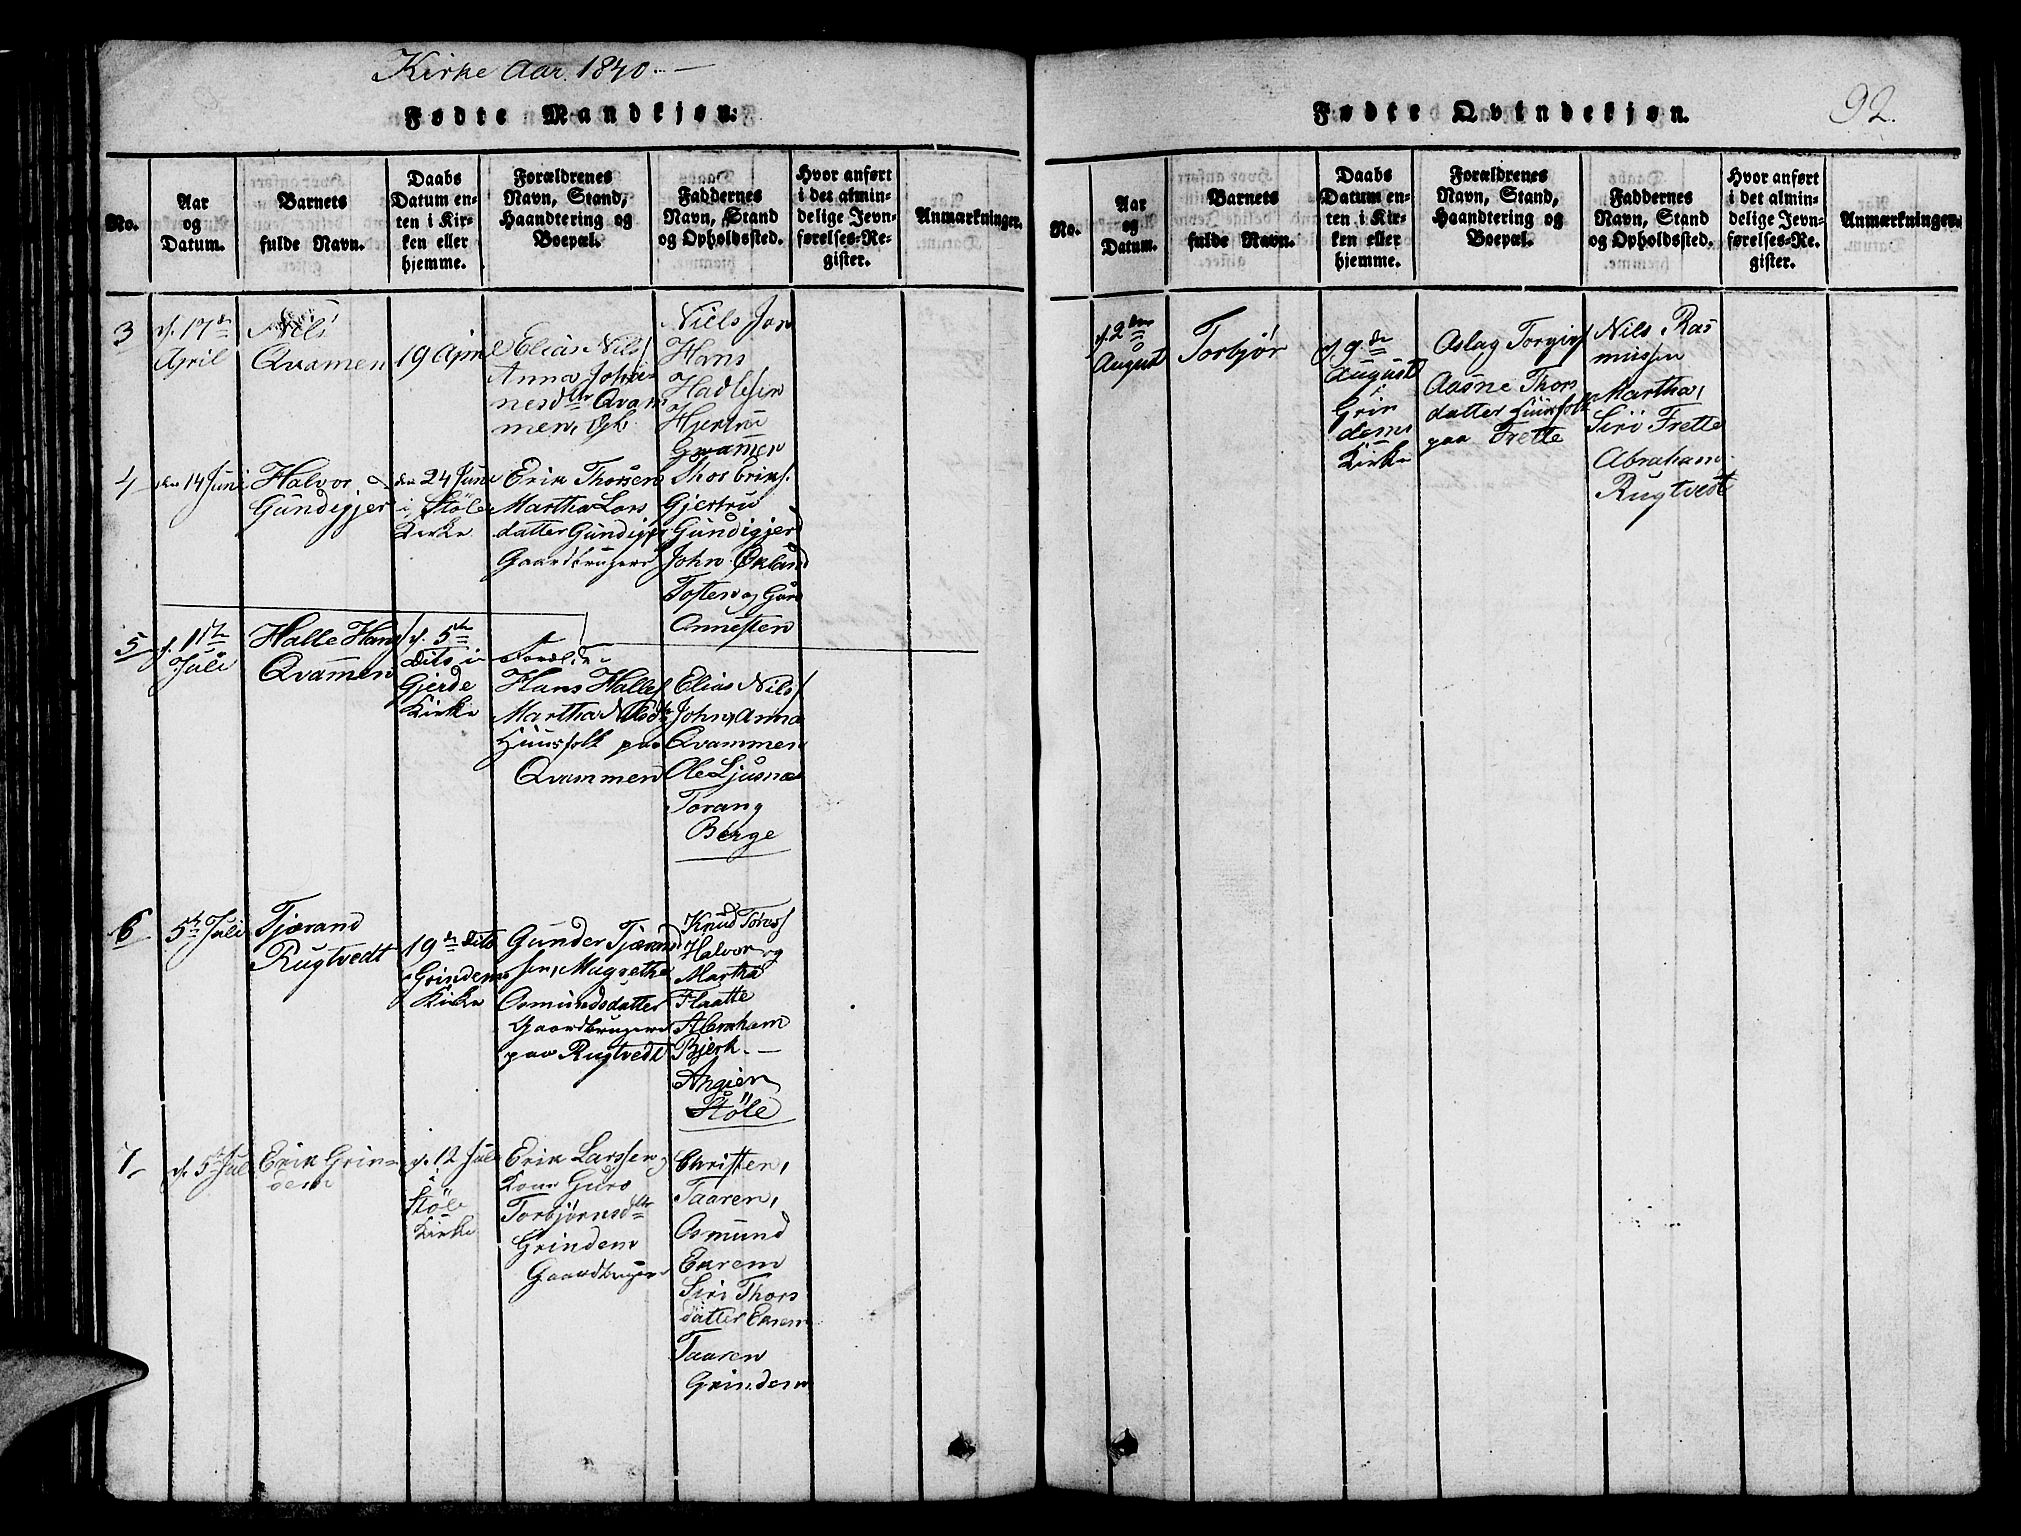 Kirke Aar 1840.
Fødte Mandkjøn.
No.
Aar
og
Datum.
Barnets
fulde Navn.
Daabs
Datum en-
ten i Kir-
ken eller
hjemme.
Forældrenes
Navn, Stand,
Haandtering og
Boepæl.
Faddernes
Navn, Stand
og Opholdssted.
Hvor anført
i det almin-
delige Jevn-
førelses-Re-
gister.
Anmærkninger.
3
d. 17de
April
Nils
Qvamen
19 April
Elias Nils
Anna Johan-
nesdtr Qvam
men,
Niels Jon
Hans
Hadlesen
Hjertru
Qvamen
4
den 14 Juni
Halvor
Gundigjer
den 24 Juni
i Støle
Kirke
Erik Thorsen
Martha Lars
datter Gundigjer
Gaardbrugere
Thor Eriks.
Gjertru
Gundigjerd
John Økland
Tosten og Guro
Onnesten
5
d. 1ste
Juli
Halle Hans
Qvamen
d. 5te
dito i
Gjerde
Kirke
Foreldre
Hans Halles
Martha Nilsdtr
Huusfolk paa
Qvammen
Elias Nils
John, Anna
Qvammen
Ole Ljusnæs
Torang
Berge
6
5te Juli
Tjærand
Rugtvedt
19de dito
Grindems
Kirke
Gunder Tjærand
sen, Magrethe
Osmundsdatter
Gaardbrugere
paa Rugtvedt
Knud Toress
Halvor og
Martha
Flaatte
Abraham
Bjerk.
Angier
Støle
7
d. 5te Juli
Erik Grin-
dem
d. 12 Juli
i
Støle
Kirke
Erik Larssen
Kone Guro
Torbjørnsdtr
Grindem
Gaardbrugere
Christen,
Taaren,
Osmund
Ekrem
Siri Thors
datter Ekrem
Taaren
Grindem
Fødte Qvindekjøn.
92.
No.
Aar
og
Datum.
Barnets
fulde Navn.
Daabs
Datum en-
ten i Kir-
ken eller
hjemme.
Forældrenes
Navn, Stand,
Haandtering og
Boepæl.
Faddernes
Navn, Stand
og Opholdssted.
Hvor anført
i det almin-
delige Jevn-
førelses-Re-
gister.
Anmærkninger.
d. 2den
August
Torbjør
d. 9de
August
i
Grin
dems
Kirke
Oslag Torgis
Aasne Thors
datter Huusfolk
paa Frette
Nils Ras
mussen
Martha,
Siri Frette
Abraham
Rugtvedt